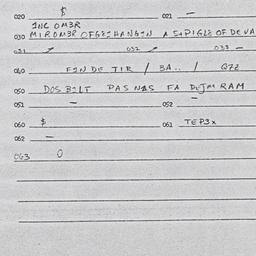 020 $ 021 –
INC OMBR
030 MIROMBR OFGEZHANGIN A S+PIGLE OF DE VA
031 / 032 / 033 –
040 FINDE TIR / BA.. / G22
050 DOS BILT PAS NAS FA RAM
051 – 052 –
060 $ 061 TEP3X
062 –
063 0